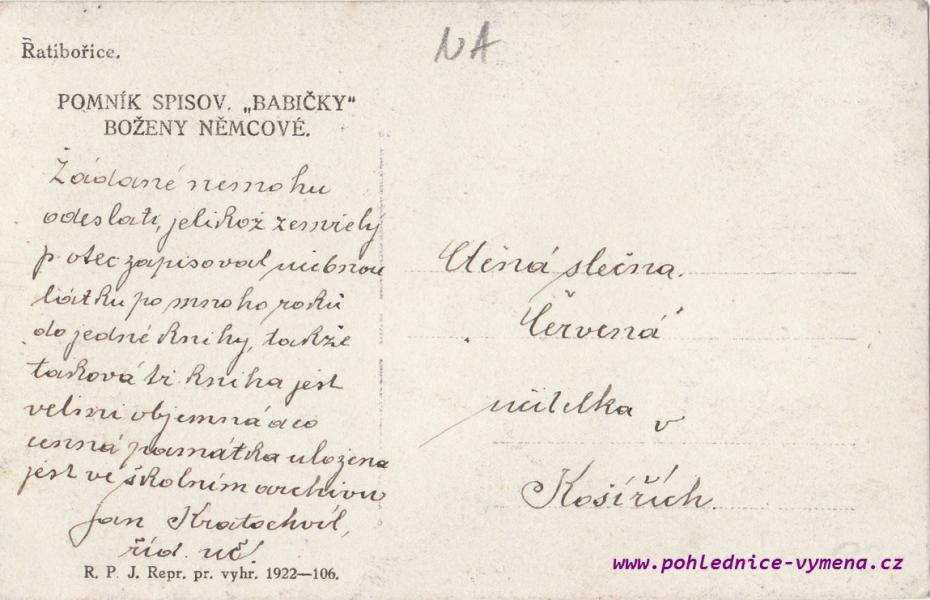 NA
Ratibořice.
POMNÍK SPISOV. „BABIČKY"
BOŽENY NĚMCOVÉ.
Žádané nemohu
odeslati, jelikož zemřelý
p. otec zapisoval učebnou
látku po mnoho roků
do jedné knihy, takže
taková ti kniha jest
velmi objemná a co
cenná památka uložena
jest ve školním archivu
Jan Kratochvíl,
říd. uč.
R. P. J. Repr. pr. vyhr. 1922—106.
Ctěná slečna.
Červená
učitelka v
Košířích
www.pohlednice-vymena.cz